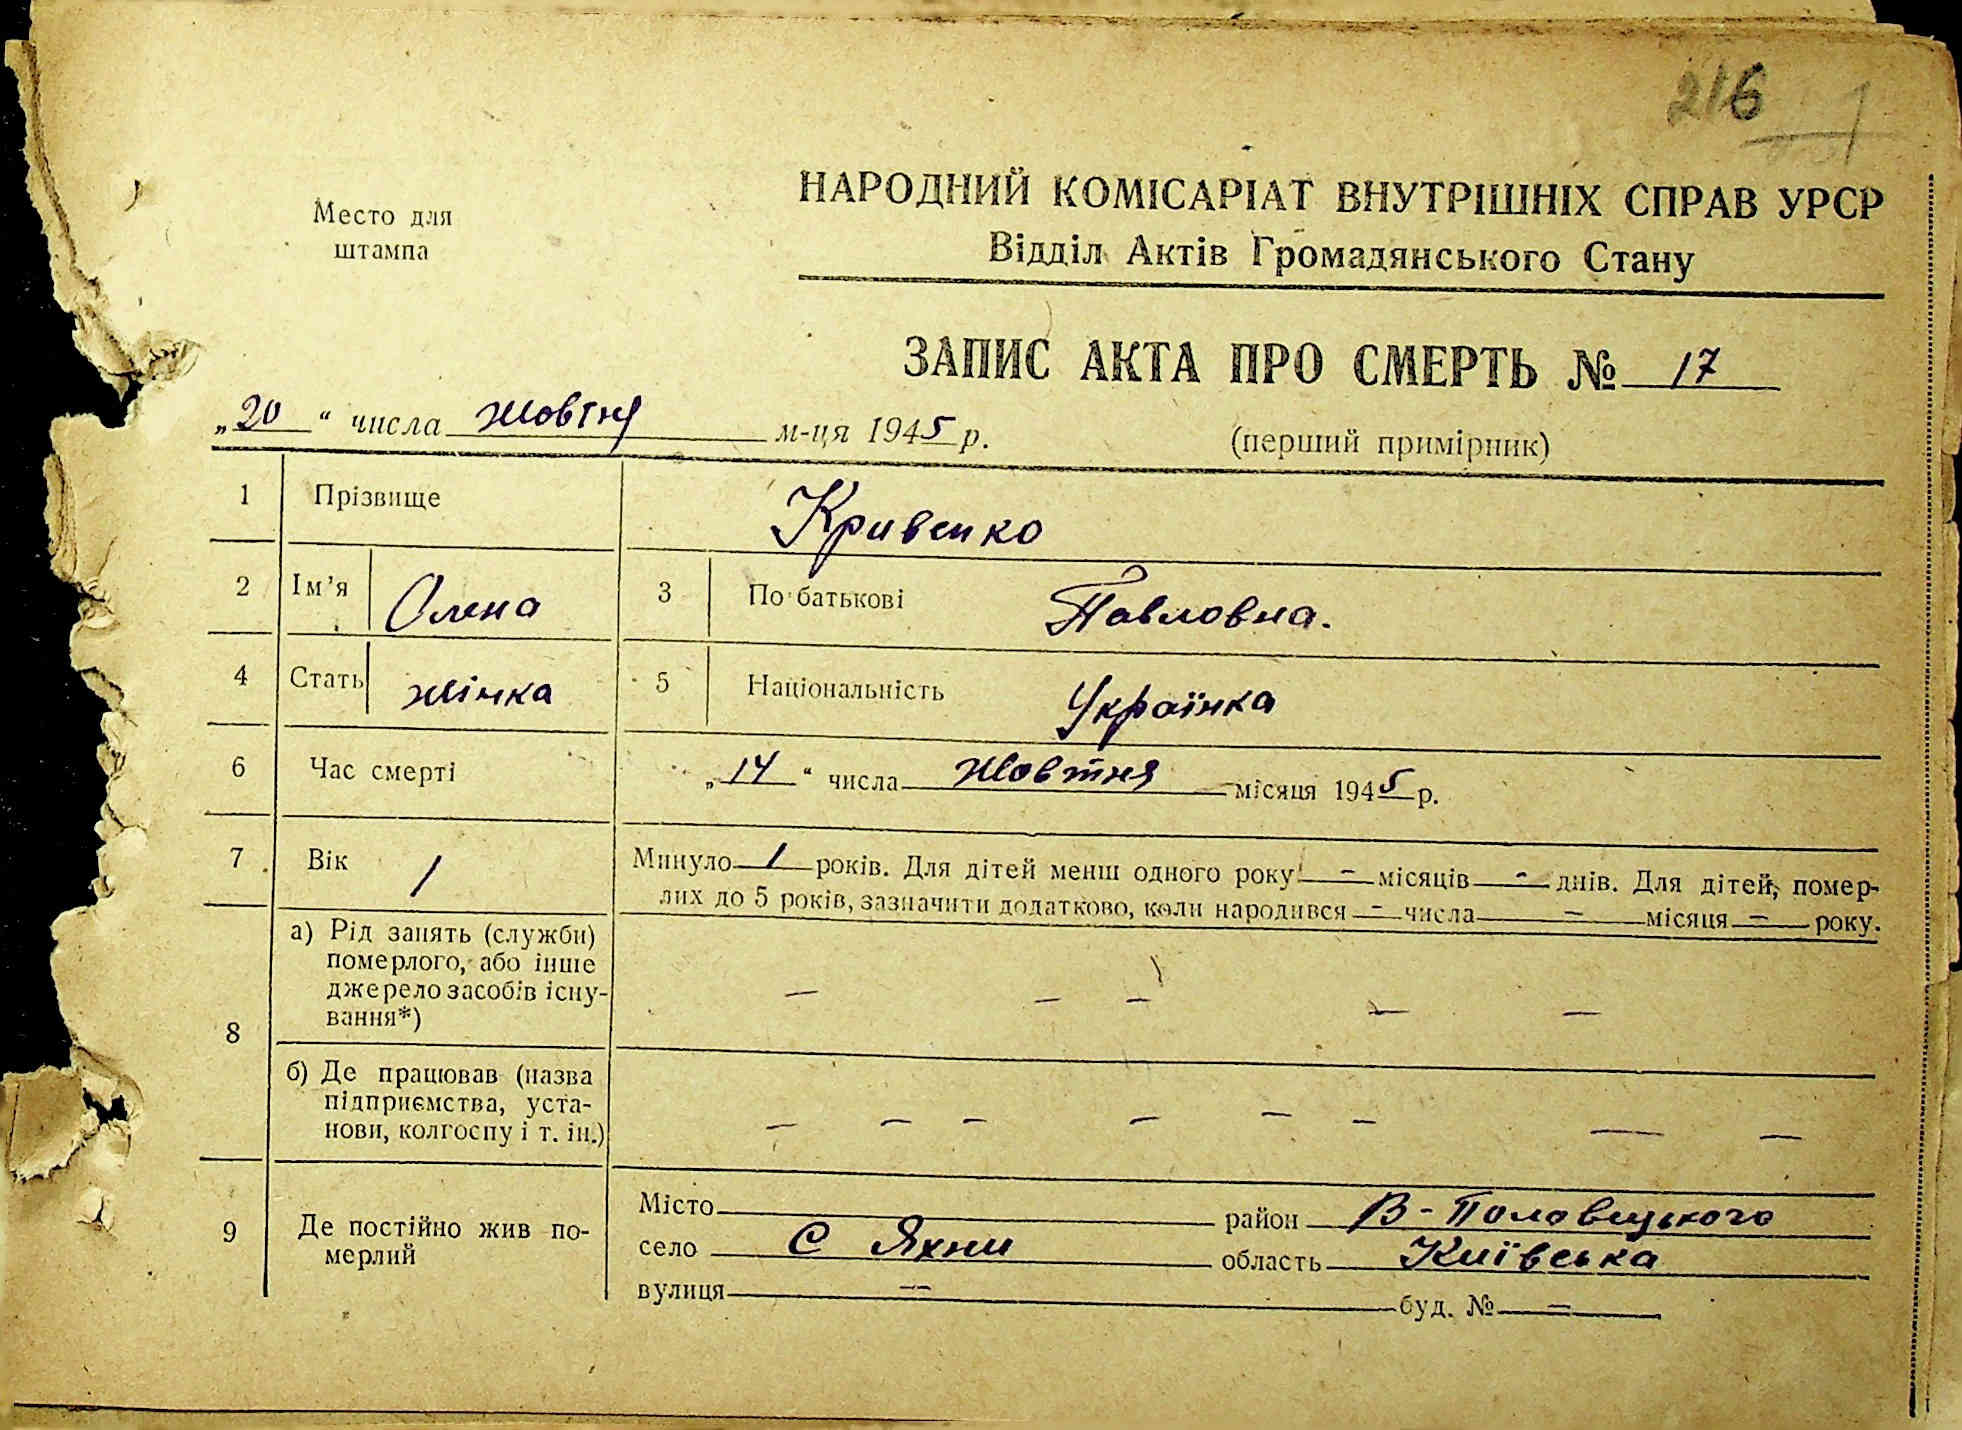 216
Место для
штампа
НАРОДНИЙ КОМІСАРІАТ ВНУТРІШНІХ СПРАВ УРСР
Відділ Актів Громадянського Стану
ЗАПИС АКТА ПРО СМЕРТЬ № 17
„20“ числа жовтня м-ця 1945 р. (перший примірник)
1 Прізвище Кривенко
2 Ім’я Олена 3 По батькові Павловна.
4 Стать жінка 5 Національність Українка
6 Час смерті „14“ числа жовтня місяця 1945 р.
7 Вік 1 Минуло 1 років. Для дітей менш одного року - місяців - днів. Для дітей, помер-
лих до 5 років, зазначити додатково, коли народився - числа - місяця - року.
8 а) Рід занять (служби)
померлого, або інше
джерело засобів існу-
вання*) — — — — —
б) Де працював (назва
підприємства, уста-
нови, колгоспу і т. ін.) — — — — — — — —
9 Де постійно жив по-
мерлий
Місто район В-Половецького
село с Яхни область Київська
вулиця — буд. № =